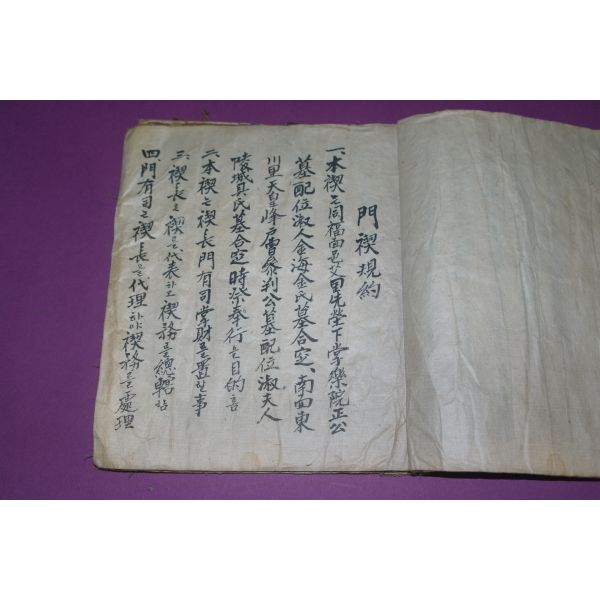 門禊規約
一、本禊는同福面邑艾里先塋下掌樂院正公
墓配位淑人金海金氏墓合窆、南面東
川里天皇峰戶曹參判公墓配位淑夫人
陵城具氏墓合窆時祭奉行을目的홈
二、本禊는禊長門有司掌財를置할事
三、禊長은禊를代表하고禊務를總轄함
四、門有司는禊長을代理하야禊務를處理